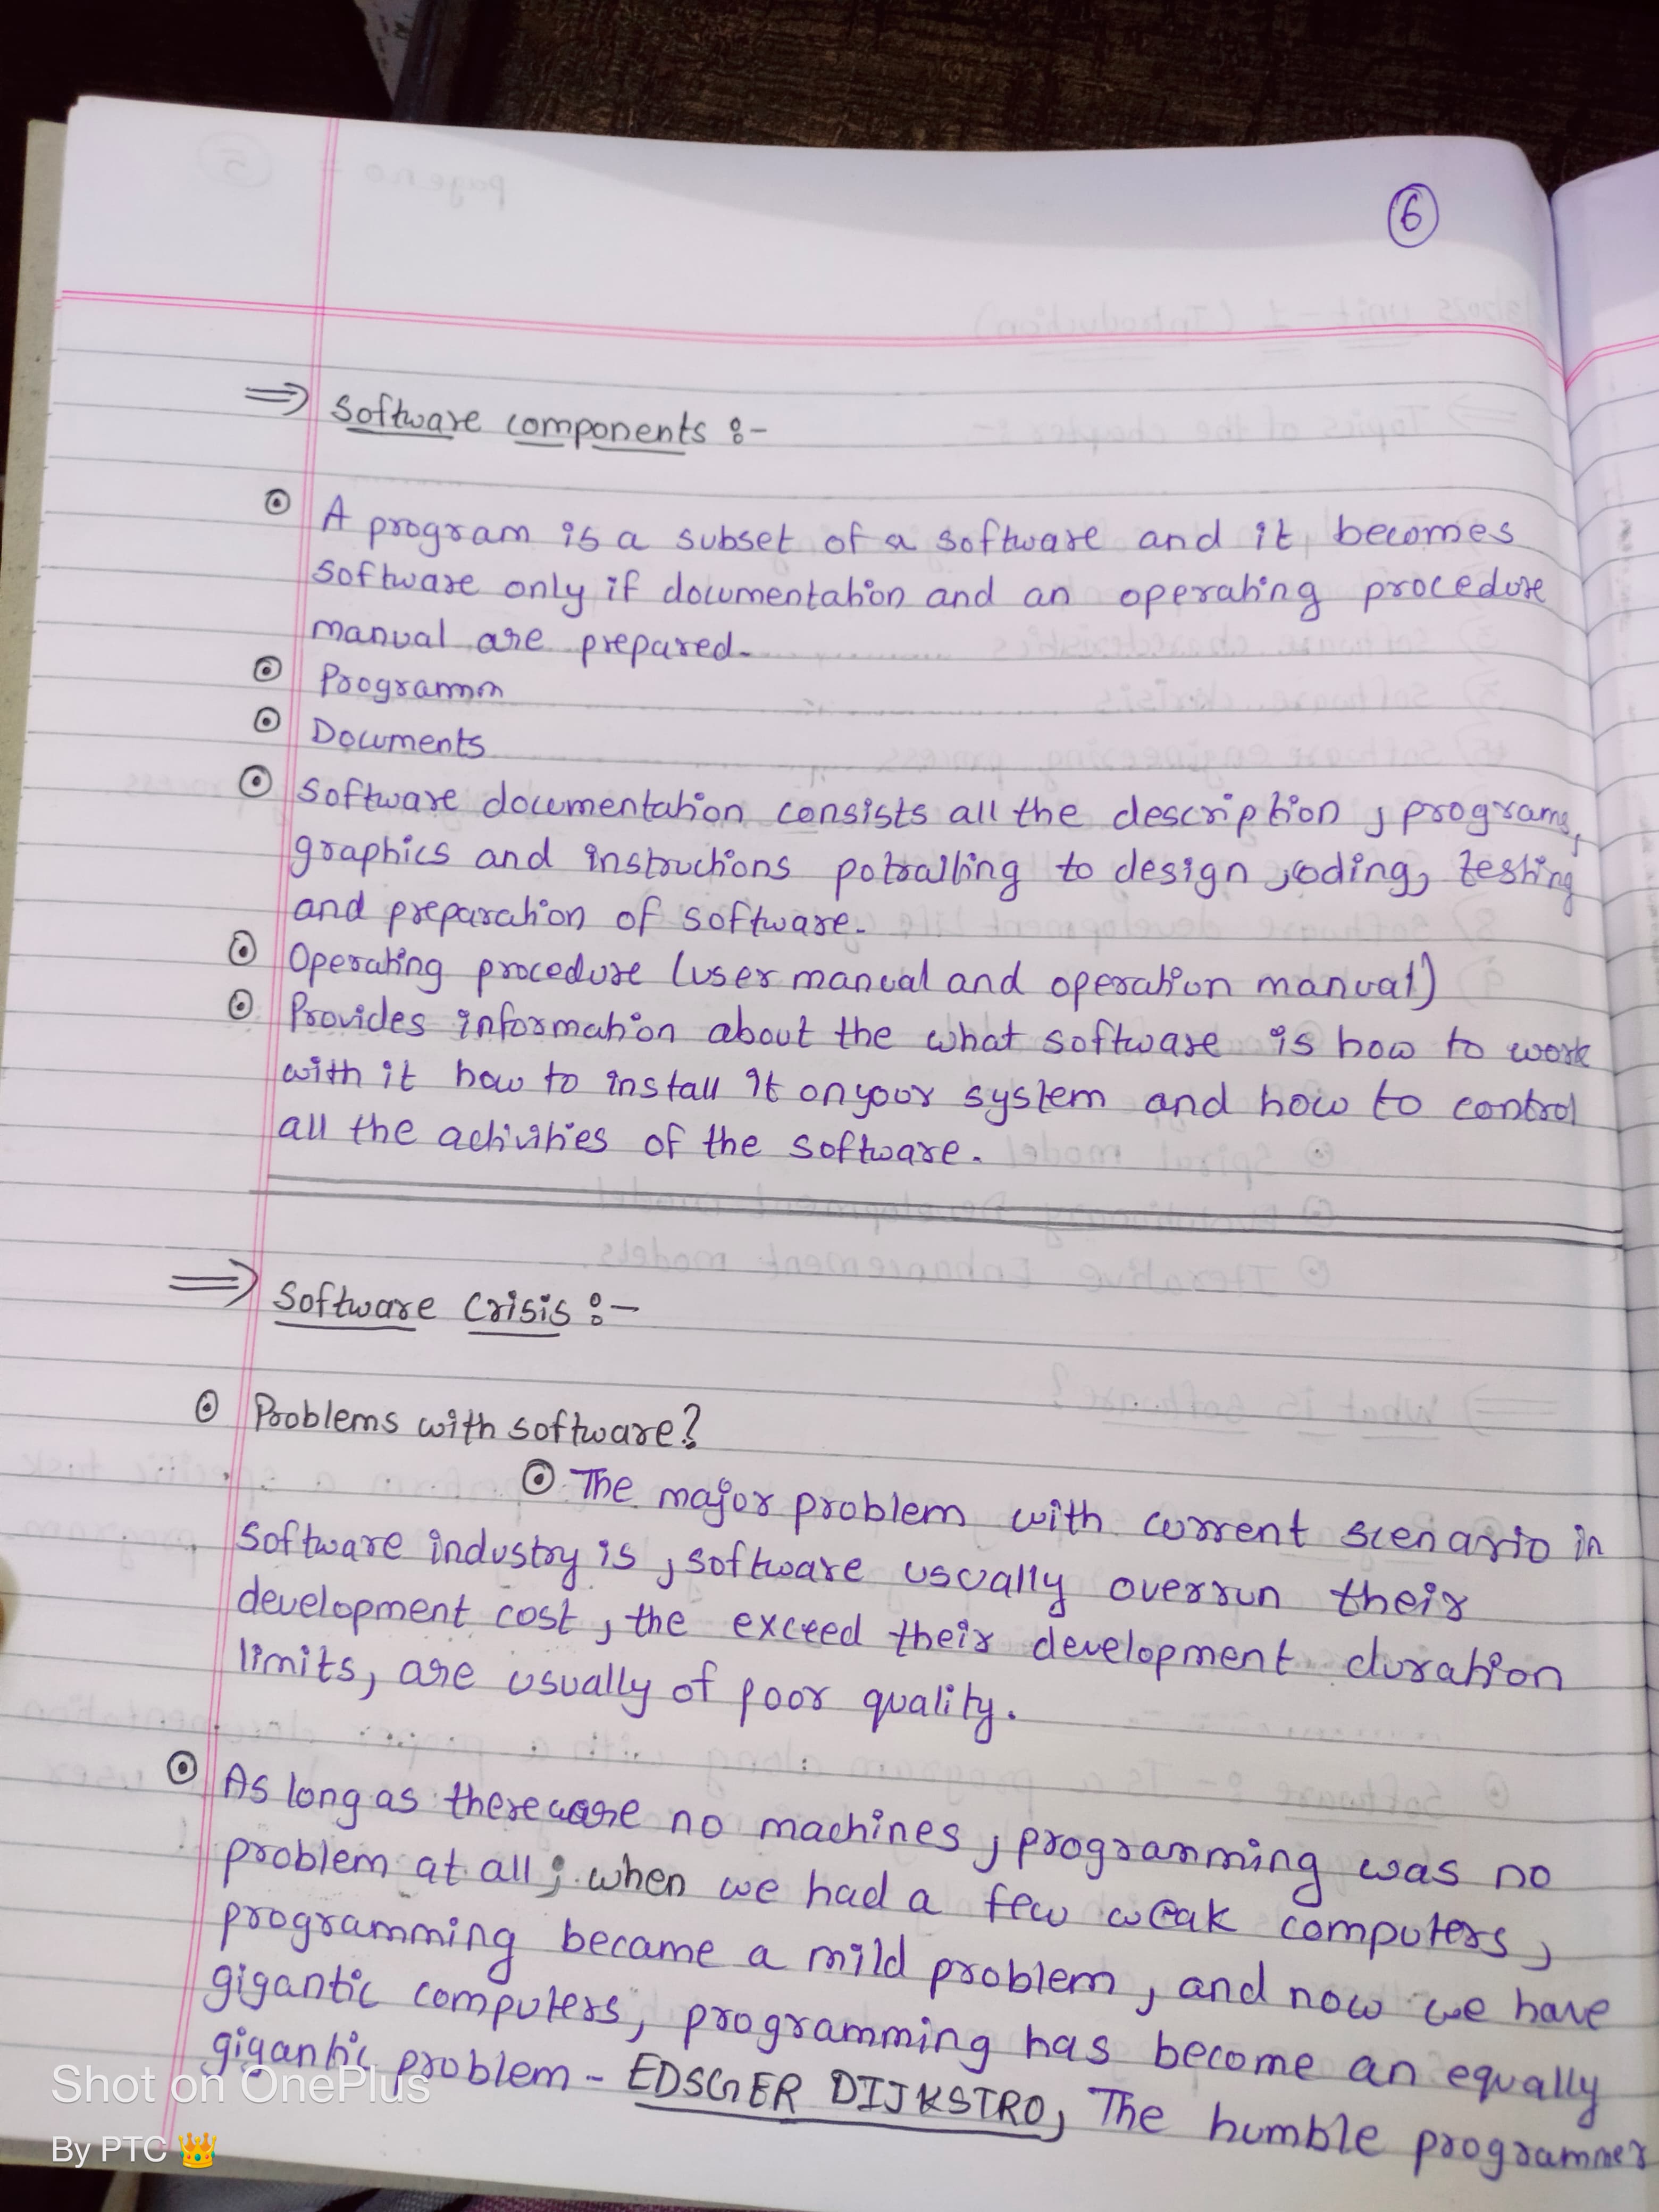 6
⇒ Software components :-
⊙ A program is a subset of a software and it becomes
software only if documentation and an operating procedure
manual are prepared.
⊙ Programm
⊙ Documents
⊙ Software documentation consists all the description, programs,
graphics and instructions potralling to design, coding, testing
and preparation of software.
⊙ Operating procedure (user manual and operation manual)
⊙ Provides information about the what software is how to work
with it how to install it on your system and how to control
all the activities of the software.
⇒ Software Crisis :-
⊙ Problems with software?
⊙ The major problem with current scenario in
software industry is, software usually overrun their
development cost, the exceed their development duration
limits, are usually of poor quality.
⊙ As long as there were no machines, programming was no
problem at all; when we had a few weak computers,
programming became a mild problem, and now we have
gigantic computers, programming has become an equally
gigantic problem - EDSGER DIJKSTRO, The humble programmer
Shot on OnePlus
By PTC 👑